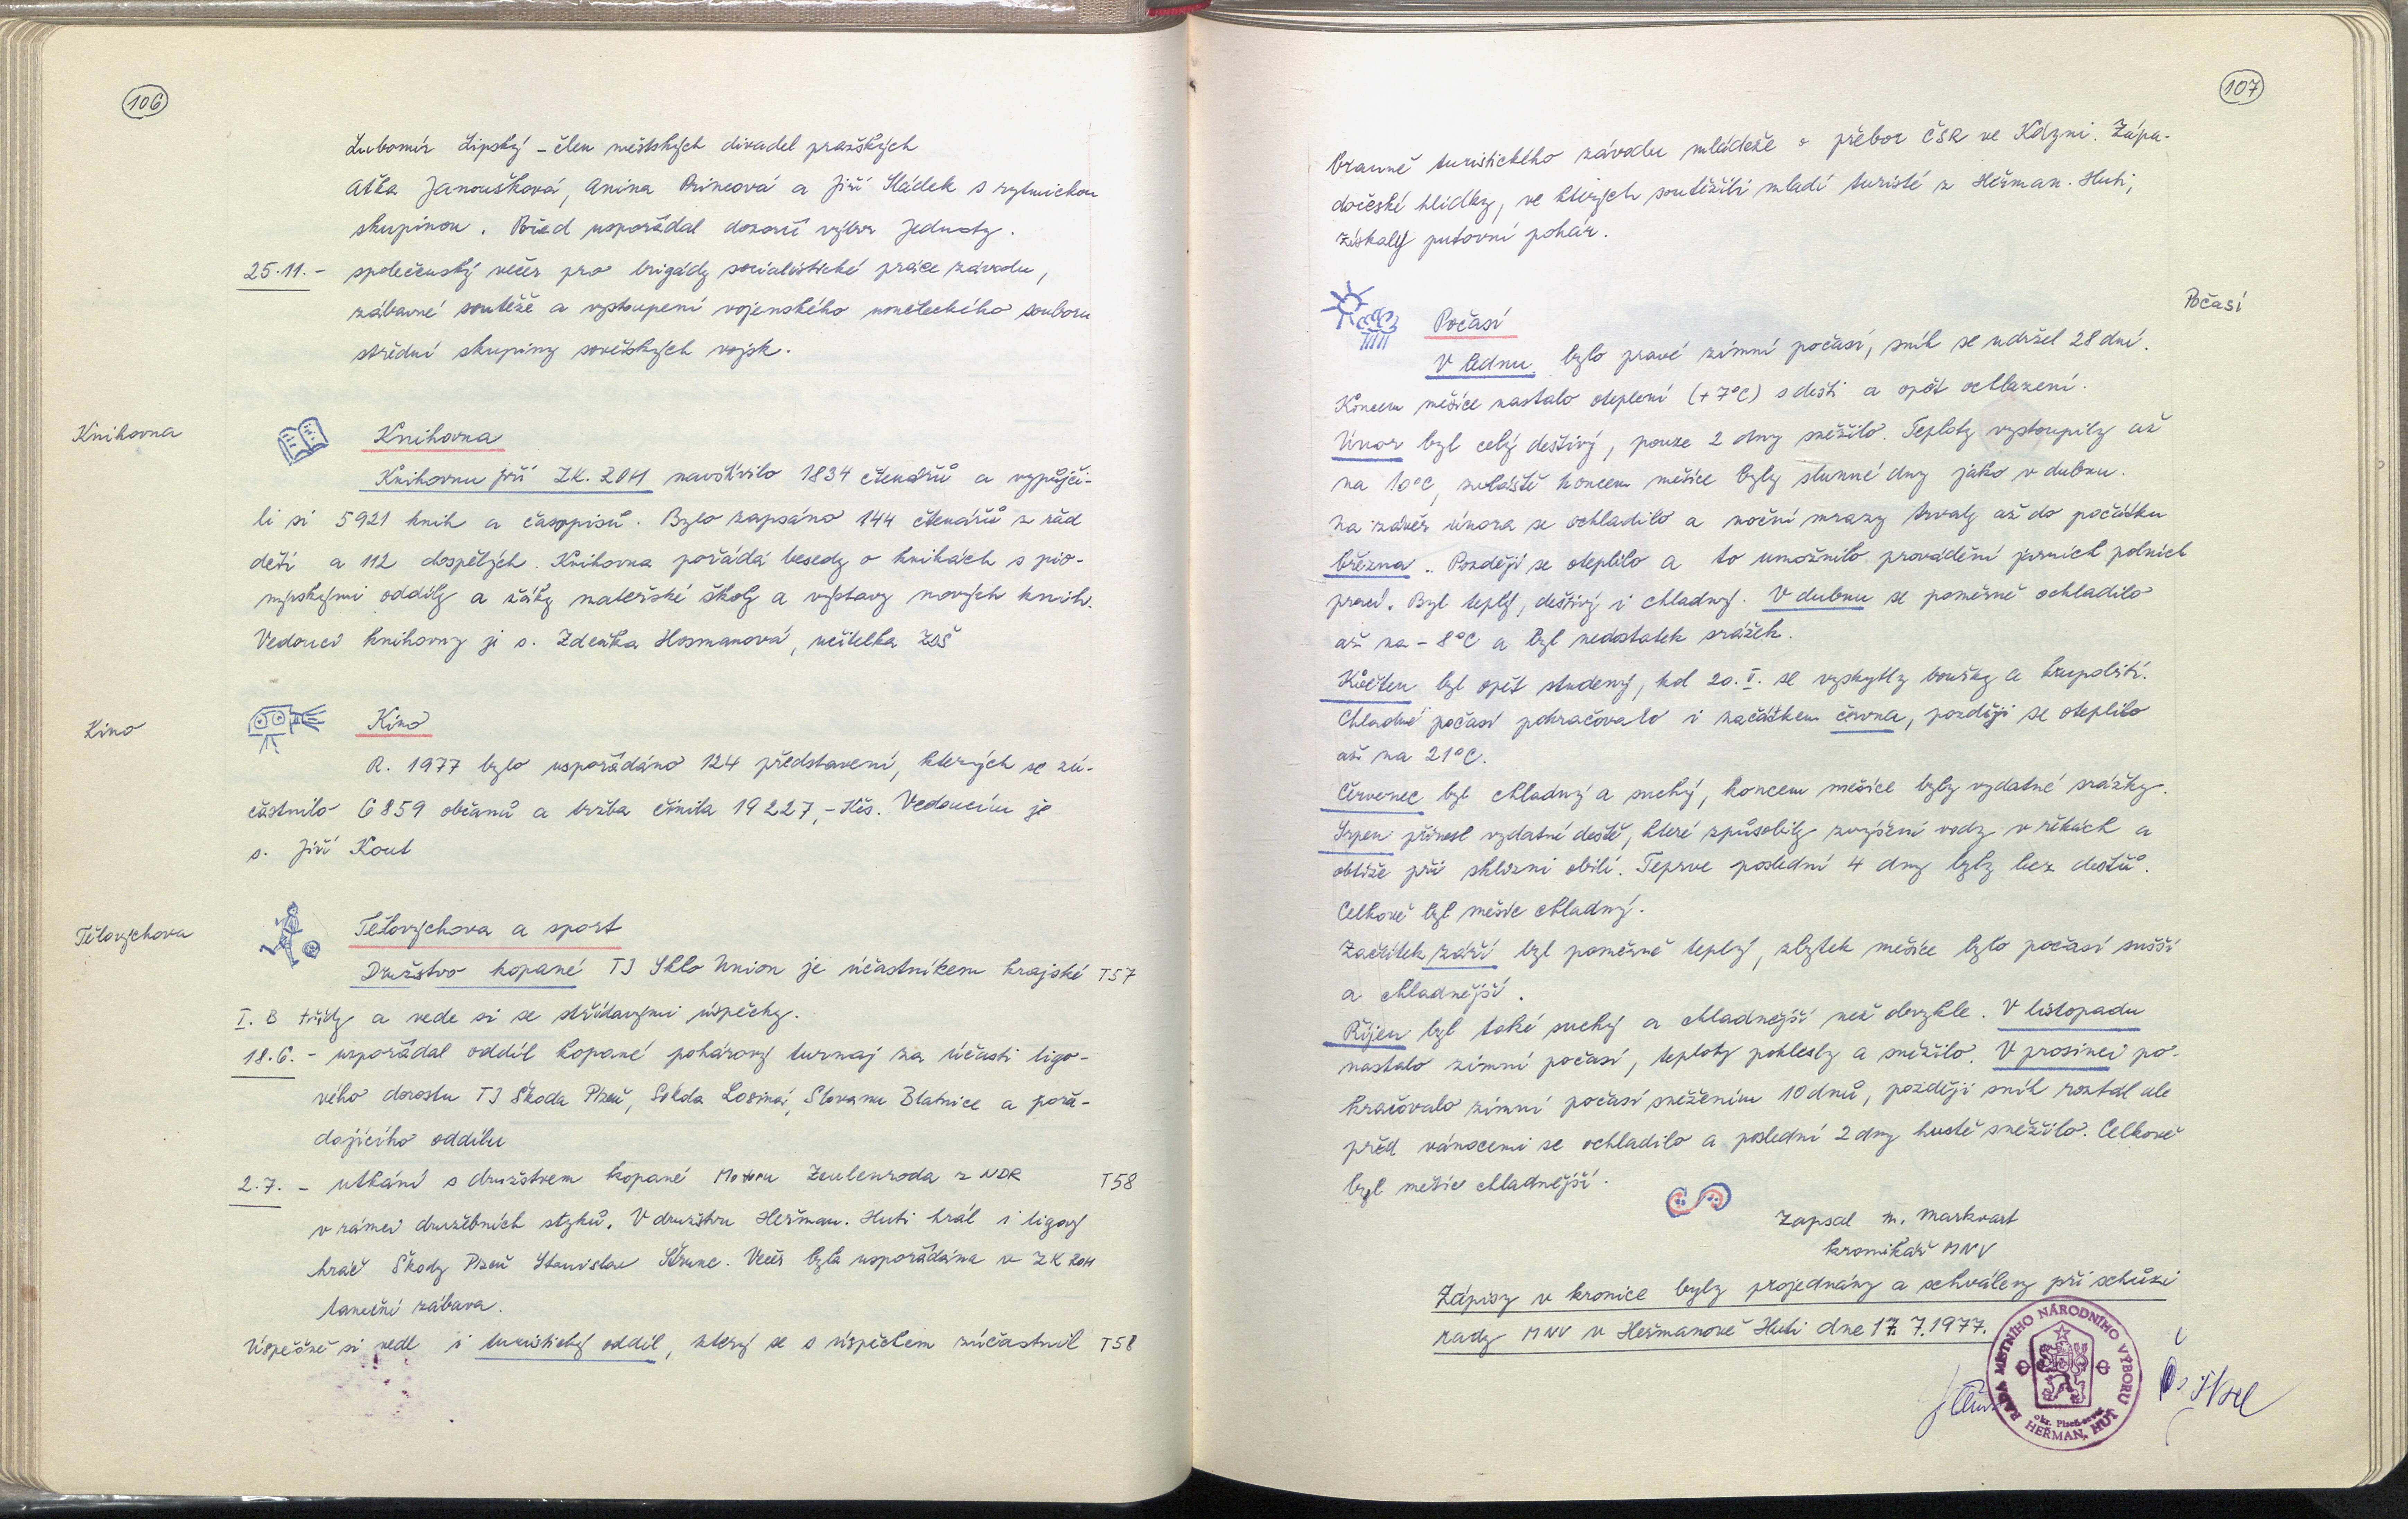 106
Lubomír Lipský – člen městských divadel pražských
Atka Janoušková, Anina Princová a Jiří Sládek s rytmickou
skupinou. Pořad uspořádal dozorčí výbor Jednoty.
25.11. – společenský večer pro brigády socialistické práce závodu,
zábavné soutěže a vystoupení vojenského uměleckého souboru
střední skupiny sovětských vojsk.
Knihovna
Knihovna
Knihovnu při ZK. ROH navštívilo 1834 čtenářů a vypůjči-
li si 5921 knih a časopisů. Bylo zapsáno 144 čtenářů z řad
dětí a 112 dospělých. Knihovna pořádá besedy o knihách s pio-
nýrskými oddíly a žáky mateřské školy a výstavy nových knih.
Vedoucí knihovny je s. Zdeňka Hosmanová, učitelka ZDŠ
Kino
Kino
R. 1977 bylo uspořádáno 124 představení, kterých se zú-
častnilo 6859 občanů a tržba činila 19227,- Kčs. Vedoucím je
s. Jiří Kout
Tělovýchova
Tělovýchova a sport
Družstvo kopané TJ Sklo Union je účastníkem krajské T57
I. B třídy a vede si se střídavými úspěchy.
18.6. – uspořádal oddíl kopané pohárový turnaj za účasti ligo-
vého dorostu TJ Škoda Plzeň, Sokola Losiná, Slovanu Blatnice a pořá-
dajícího oddílu
2.7. – utkání s družstvem kopané Motoru Zeulenroda z NDR T58
v rámci družebních styků. V družstvu Heřman. Huti hrál i ligový
hráč Škody Plzeň Stanislav Štrunc. Večer byla uspořádána v ZK ROH
taneční zábava.
Úspěšně si vedl i turistický oddíl, který se s úspěchem zúčastnil T58
107
branně turistického závodu mládeže o přebor ČSR ve Kdyni. Zápa-
dočeské hlídky, ve kterých soutěžili mladí turisté z Heřman. Huti,
získaly putovní pohár.
Počasí
Počasí
V lednu bylo pravé zimní počasí, sníh se udržel 28 dní.
Koncem měsíce nastalo oteplení (+7°C) s dešti a opět ochlazení.
Únor byl celý deštivý, pouze 2 dny sněžilo. Teploty vystoupily až
na 10°C, zvláště koncem měsíce byly slunné dny jako v dubnu.
Na závěr února se ochladilo a noční mrazy trvaly až do počátku
března. Později se oteplilo a to umožnilo provádění jarních polních
prací. Byl teplý, deštivý i chladný. V dubnu se poměrně ochladilo
až na -8°C a byl nedostatek srážek.
Květen byl opět studený, kol 20. V. se vyskytly bouřky a krupobití.
Chladné počasí pokračovalo i začátkem června, později se oteplilo
až na 21°C.
Červenec byl chladný a suchý, koncem měsíce byly vydatné srážky.
Srpen přinesl vydatné deště, které způsobily zvýšení vody v řekách a
obtíže při sklizni obilí. Teprve poslední 4 dny byly bez dešťů.
Celkově byl měsíc chladný.
Začátek září byl poměrně teplý, zbytek měsíce bylo počasí sušší
a chladnější.
Říjen byl také suchý a chladnější než obvykle. V listopadu
nastalo zimní počasí, teploty poklesly a sněžilo. V prosinci po-
kračovalo zimní počasí sněžením 10 dnů, později sníh roztál ale
před vánocemi se ochladilo a poslední 2 dny hustě sněžilo. Celkově
byl měsíc chladnější.
Zapsal M. Markvart
kronikář MNV
Zápisy v kronice byly projednány a schváleny při schůzi
rady MNV v Heřmanově Huti dne 17. 7. 1977.
RADA MÍSTNÍHO NÁRODNÍHO VÝBORU
okr. Plzeň-sever
HEŘMAN. HUŤ